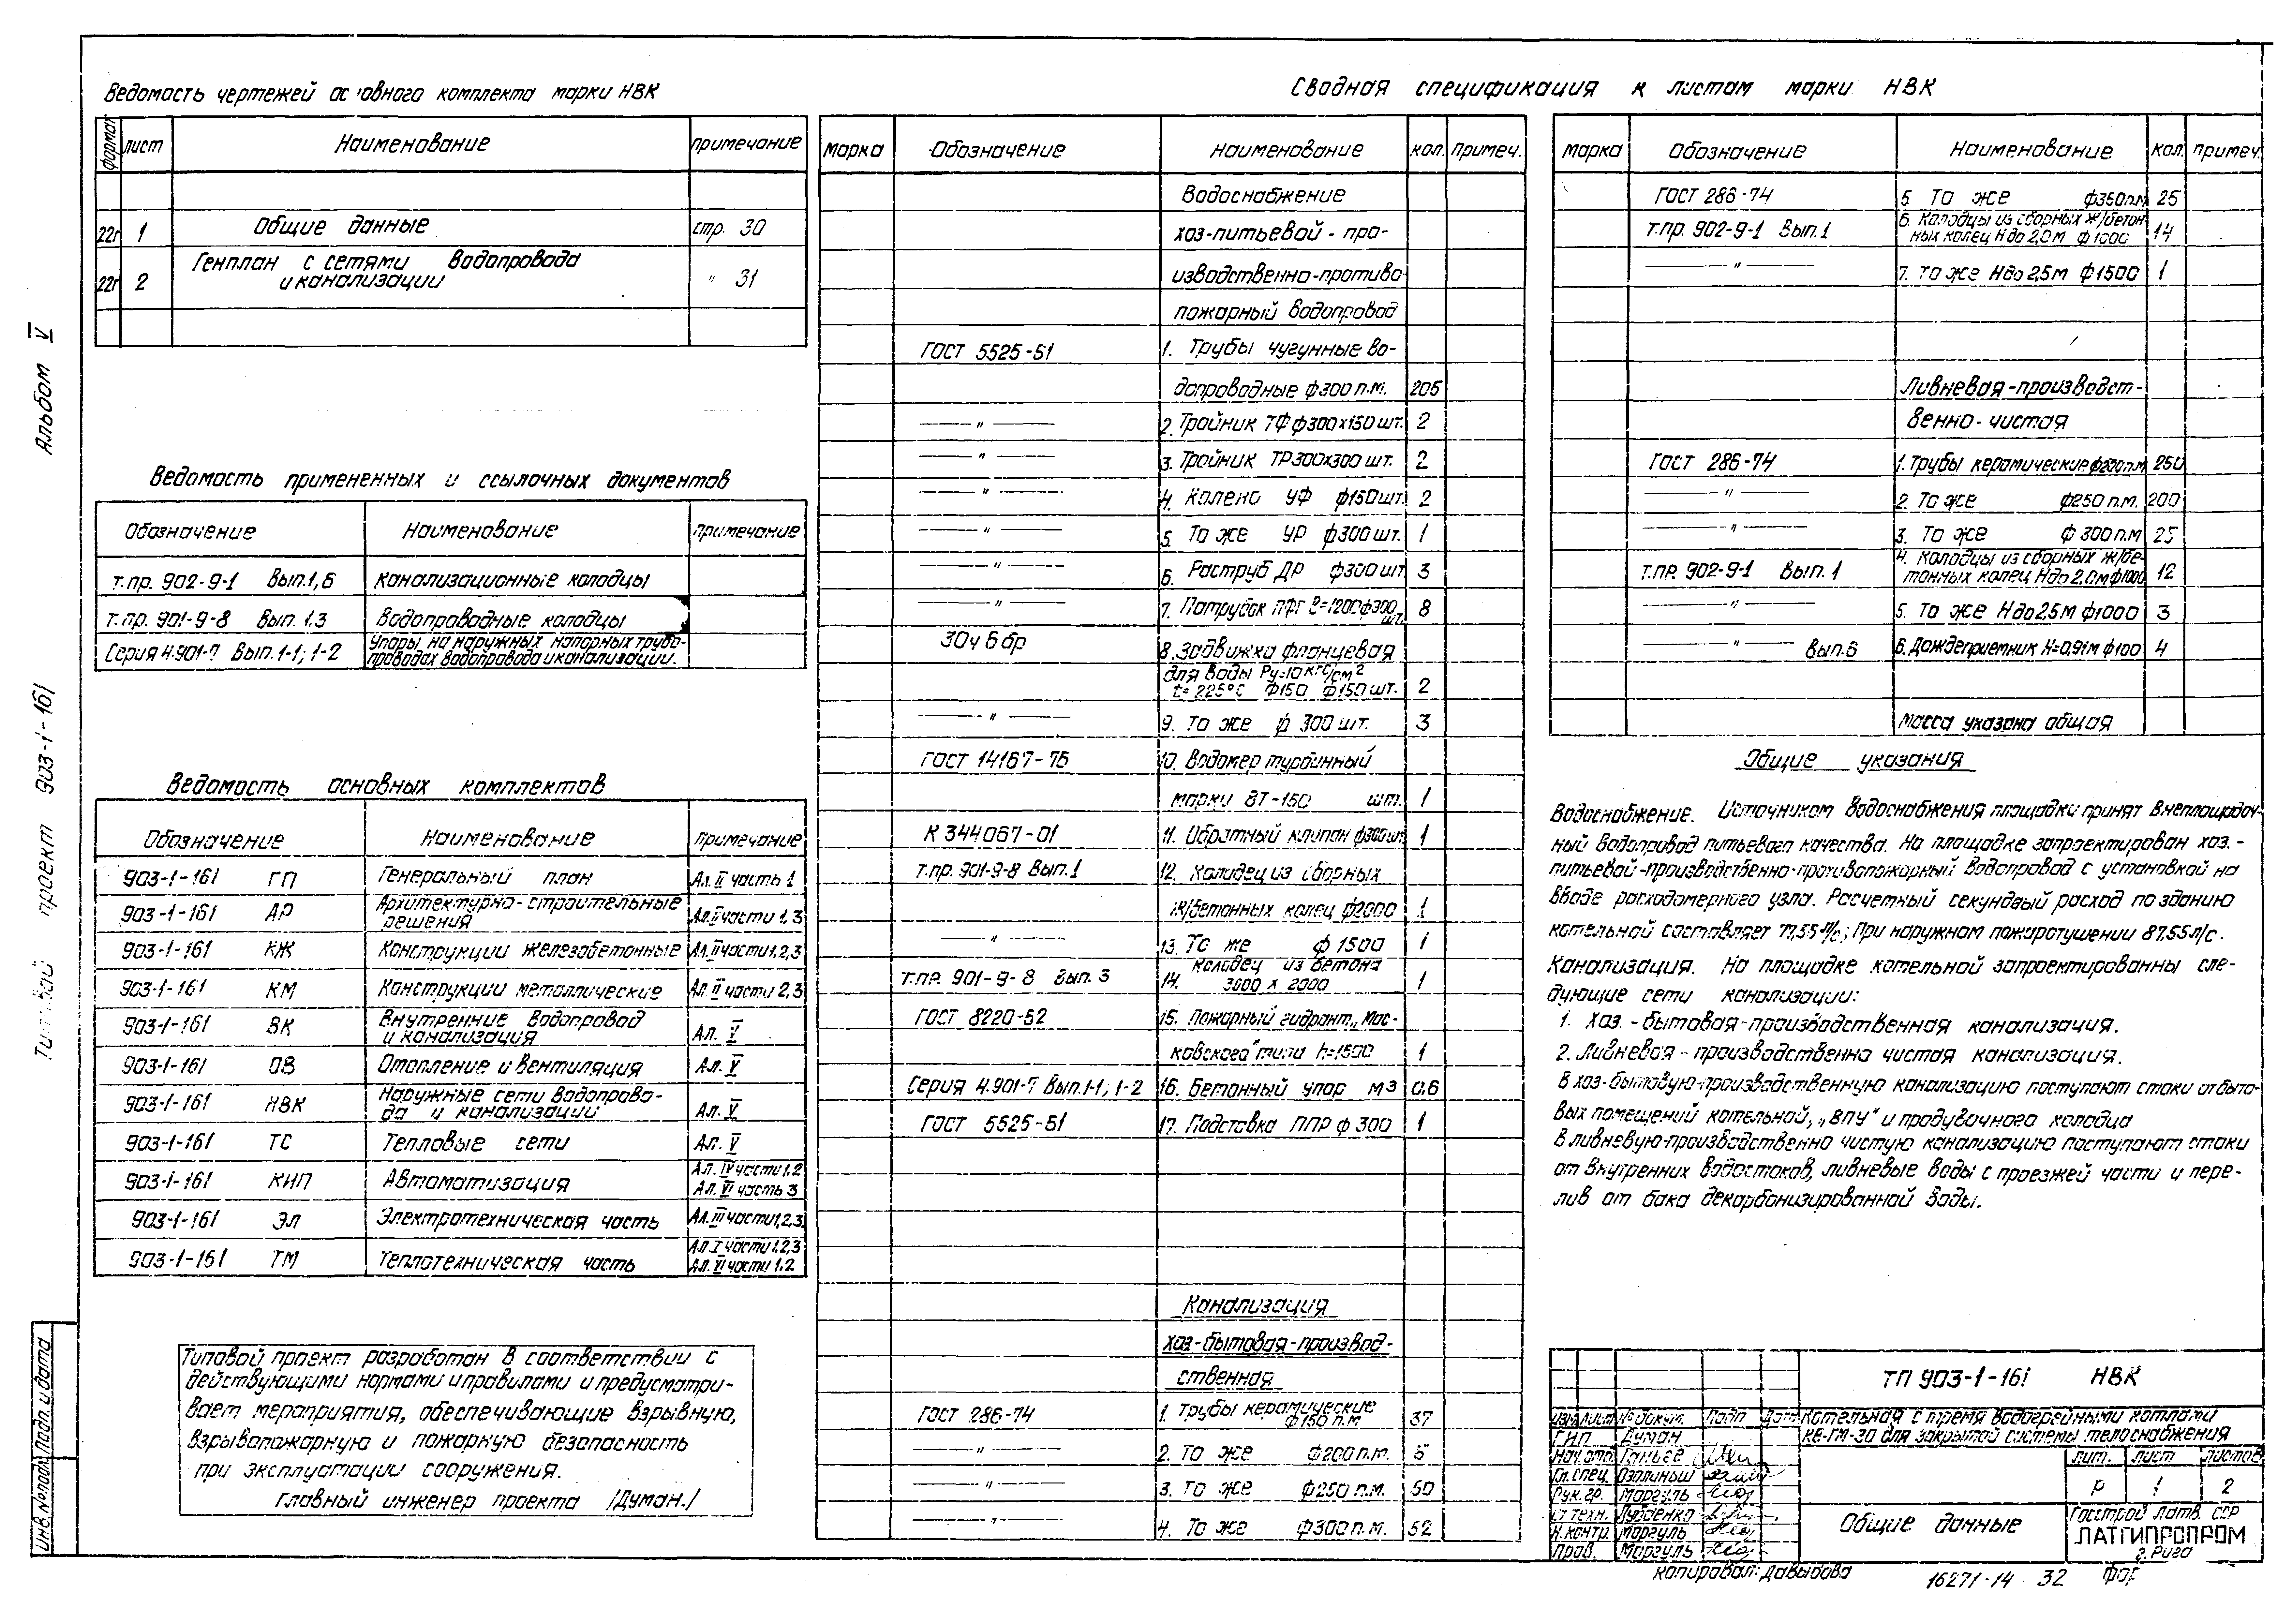 Альбом V
Типовой проект 903-1-161
Инв.№подл. Подп. и дата
Ведомость чертежей основного комплекта марки НВК
формат лист Наименование примечание
22г 1 Общие данные стр. 30
22г 2 Генплан с сетями водопровода
и канализации " 31
Ведомость примененных и ссылочных документов
Обозначение Наименование Примечание
т.пр. 902-9-1 Вып.1,6 канализационные колодцы
т.пр. 901-9-8 Вып. 1.3 водопроводные колодцы
Серия 4.901-7 Вып.1-1; 1-2 Упоры на наружных напорных трубо-
проводах водопровода и канализации.
Ведомость основных комплектов
Обозначение Наименование Примечание
903-1-161 ГП Генеральный план Ал. II часть 1
903-1-161 АР Архитектурно-строительные
решения Ал. II части 1,3
903-1-161 КЖ Конструкции железобетонные Ал. II части 1,2,3
903-1-161 КМ Конструкции металлические Ал. II части 2,3
903-1-161 ВК Внутренние водопровод
и канализация Ал. V
903-1-161 ОВ Отопление и вентиляция Ал. V
903-1-161 НВК Наружные сети водопрово-
да и канализации Ал. V
903-1-161 ТС Тепловые сети Ал. V
903-1-161 КИП Автоматизация Ал. IV части 1,2
Ал. VI часть 3
903-1-161 ЭЛ Электротехническая часть Ал. III части 1,2,3
903-1-161 ТМ Теплотехническая часть Ал. I части 1,2,3
Ал. VI части 1.2
Типовой проект разработан в соответствии с
действующими нормами и правилами и предусматри-
вает мероприятия, обеспечивающие взрывную,
взрывопожарную и пожарную безопасность
при эксплуатации сооружения.
Главный инженер проекта /Думан./
Сводная спецификация к листам марки НВК
марка Обозначение Наименование кол. примеч.
Водоснабжение
хоз-питьевой-про-
изводственно-противо-
пожарный водопровод
ГОСТ 5525-61 1. Трубы чугунные во-
допроводные ф300 п.м. 205
—"— 2. Тройник ТФ ф300х150 шт. 2
—"— 3. Тройник ТР300х300 шт. 2
—"— 4. Колено УФ ф150 шт. 2
—"— 5. То же УР ф300 шт. 1
—"— 6. Раструб ДР ф300 шт 3
—"— 7. Патрубок ПФГ ℓ=1200ф300 шт. 8
30ч 6 бр 8. Задвижка фланцевая
для воды Ру=10 кгс/см²
t=225°С ф150 ф150 шт. 2
—"— 9. То же ф 300 шт. 3
ГОСТ 14167-76 10. Водомер турбинный
марки ВТ-150 шт. 1
К 344067-01 11. Обратный клапан ф300шт 1
т.пр. 901-9-8 Вып.1 12. Колодец из сборных
ж/бетонных колец ф2000 1
—"— 13. То же ф 1500 1
т.пр. 901-9-8 Вып. 3 14. Колодец из бетона
3000 х 2000 1
ГОСТ 8220-62 15. Пожарный гидрант „Мос-
ковского" типа h=1500 1
Серия 4.901-7 Вып.1-1; 1-2 16. Бетонный упор м3 0.6
ГОСТ 5525-61 17. Подставка ППР ф 300 1
Канализация
хоз-бытовая-производ-
ственная
ГОСТ 286-74 1. Трубы керамические
ф150 п.м 37
—"— 2. То же ф200 п.м. 5
—"— 3. То же ф250 п.м. 50
—"— 4. То же ф300 п.м. 52
марка Обозначение Наименование кол. примеч.
ГОСТ 286-74 5. То же ф350п.м 25
т.пр. 902-9-1 Вып.1 6. Колодцы из сборных ж/бетон-
ных колец Н до 2,0м ф1000 14
—"— 7. То же Н до 2,5м ф1500 1
Ливневая-производст-
венно-чистая
ГОСТ 286-74 1. Трубы керамические ф200п.м 250
—"— 2. То же ф250 п.м. 200
—"— 3. То же ф 300 п.м 25
т.пр. 902-9-1 Вып. 1 4. Колодцы из сборных ж/бе-
тонных колец Н до 2.0м ф1000 12
—"— 5. То же Н до 2,5м ф1000 3
—"— Вып.6 6. Дождеприемник Н=0,91м ф100 4
Масса указана общая
Общие указания
Водоснабжение. Источником водоснабжения площадки принят внеплощадоч-
ный водопровод питьевого качества. На площадке запроектирован хоз.-
питьевой-производственно-противопожарный водопровод с установкой на
вводе расходомерного узла. Расчетный секундный расход по зданию
котельной составляет 77,55 л/с; При наружном пожаротушении 87.55л/с.
Канализация. На площадке котельной запроектированны сле-
дующие сети канализации:
1. Хоз.-бытовая-производственная канализация.
2. Ливневая-производственно чистая канализация.
В хоз-бытовую-производственную канализацию поступают стоки от быто-
вых помещений котельной, „ВПУ" и продувочного колодца
В ливневую-производственно чистую канализацию поступают стоки
от внутренних водостоков, ливневые воды с проезжей части и пере-
лив от бака декарбонизированной воды.
ТП 903-1-161 НВК
Изм. Лист № докум. Подп. Дата
Котельная с тремя водогрейными котлами
КВ-ГМ-30 для закрытой системы телоснабжения
ГИП Думан
Нач. отд.
Гл. спец. Озолиньш
Рук. гр. Моргуль
Ст. техн.
Н. контр. Моргуль
Пров. Моргуль
лит. лист листов
Р 1 2
Общие данные
Госстрой Латв. ССР
ЛАТГИПРОПРОМ
г. Рига
Копировал: Давыдова
16271-14 32 фор